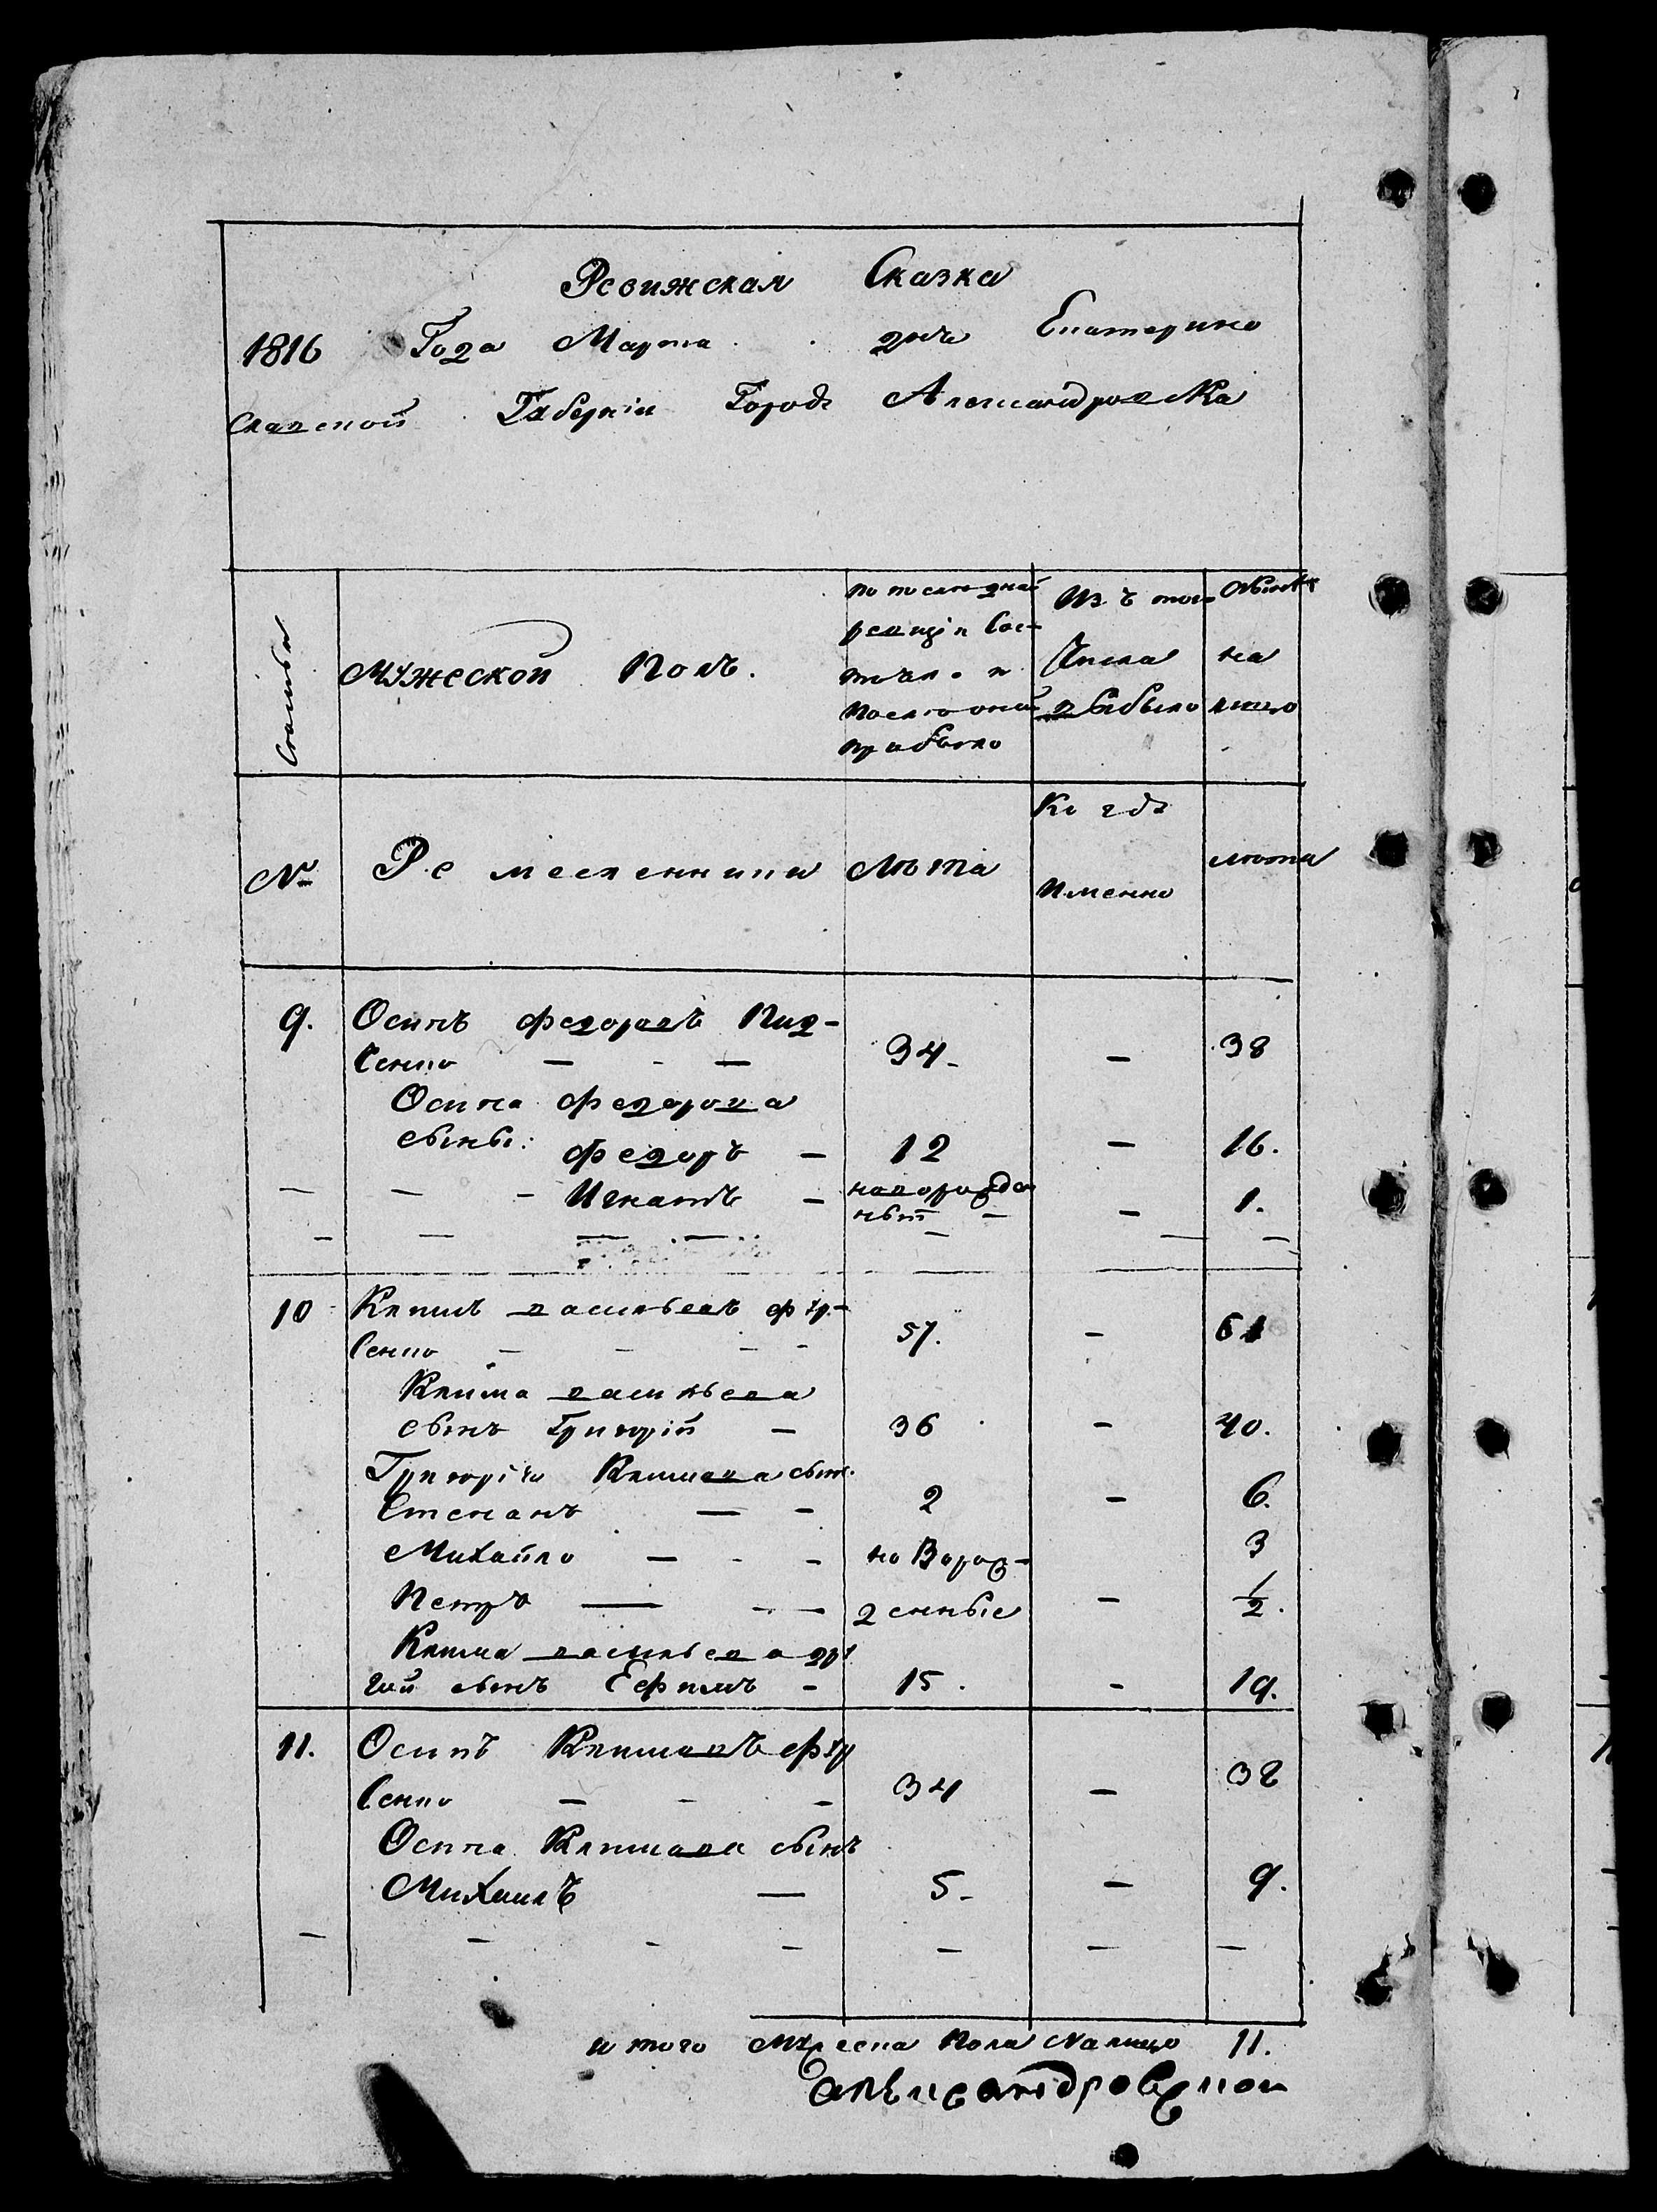 Ревижская Сказка
1816 Года Марта дня Екатерино
Славской Губерніи Города Александровска
Семьи
Мужеской Полъ.
по последней
ревизіи Сос-
тояло и
после оной
прибыло
Изъ того
Числа
выбыло
Ныне
на
лицо
№
Ремесленники
Лѣта
Когда
Именно
лѣта
9. Осипъ Федоровъ
Сенко — - — 34 - — 38
Осипа Федорова
сыны: Федоръ — 12 — 16.
— — - Игнатъ — новорожден
ный — — 1.
10 Климъ Васильевъ Фур-
сенко — — — - 57. — 61
Клима Васильева
сынъ Григорій — 36 — 40.
Григорія Климова сын.
Степанъ — - 2 — 6.
Михайло — - - новорож- 3
Петръ — - — денные — 1/2.
Клима Васильева дру
гий сынъ Ефимъ - 15. - 19.
11. Осипъ Климовъ Фур
сенко — - - 34 — 38
Осипа Климова сынъ
Михаилъ — 5 - — 9.
и того Мужеска Пола Налицо 11.